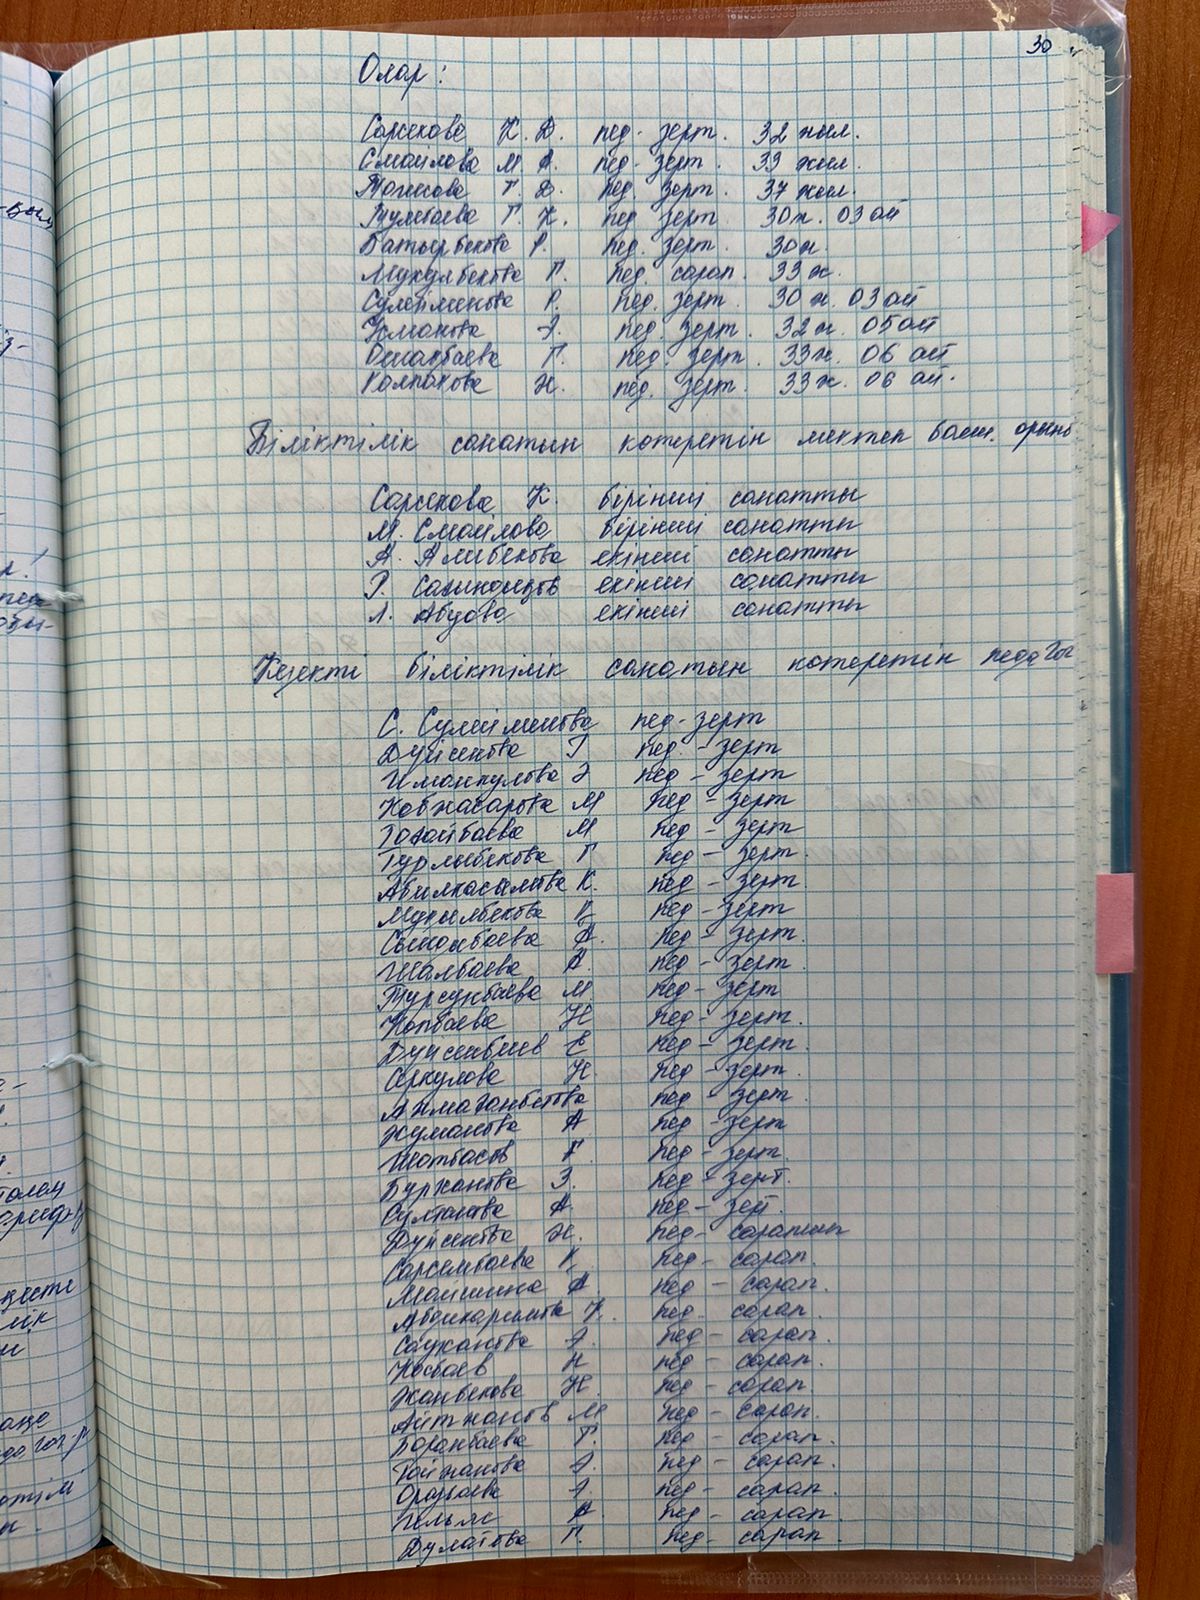 30
Олар:
Сарсекова К. Д. пед-зерт. 32 жыл.
Смаилова М. А. пед-зерт. 33 жыл.
Г. Д. пед. зерт. 37 жыл.
Г. К. пед зерт 30ж. 03 ай
Батырбекова Р. пед. зерт. 30ж.
Мукулбекова Г. пед. сарап. 33 ж.
Сулейменова Р. пед. зерт. 30 ж. 03 ай
Усманова Э. пед. зерт. 32 ж. 05 ай
Оспанбаева Г. пед. зерт. 33ж. 06 ай
Колпакова Н. пед. зерт. 33 ж. 06 ай.
Біліктілік санатын көтеретін мектеп басш. орынб
Сарсекова К. бірінші санатты
М. Смаилова бірінші санатты
А. Алибекова екінші санатты
екінші санатты
Л. Абуова екінші санатты
Кезекті біліктілік санатын көтеретін педагог
С. Сулейменова пед-зерт
Дуйсенова Г пед.-зерт
Иманкулова Э пед-зерт
Кожасарова М пед-зерт
М пед-зерт
Турлыбекова Г пед-зерт.
Абилкасымова К. пед-зерт.
Мукылбекова Қ пед-зерт
А. пед-зерт.
Шалбаева А. пед-зерт.
Турсунбаева М. пед-зерт
Копбаева Н пед-зерт.
Дуйсенбиев Е пед-зерт.
Серкулова Н. пед-зерт.
Ахмаганбетова пед-зерт.
Жуманова А пед-зерт
Шотбасов Г. пед-зерт.
Бурханова З. пед-зерт.
Султанова А. пед-зерт.
Дуйсенова Н. пед-сарапшы
Сарсембаева К пед-сарап.
А пед-сарап.
К. пед. сарап.
Сауханова Э. пед-сарап.
Косбаев Н пед-сарап.
Жанбекова Н. пед-сарап.
Айтжанов М пед-сарап.
Баранбаева Г. пед-сарап.
Тайжанова Э. пед-сарап.
Оразбаева Э. пед-сарап.
А пед-сарап.
Дулатова Г. пед-сарап